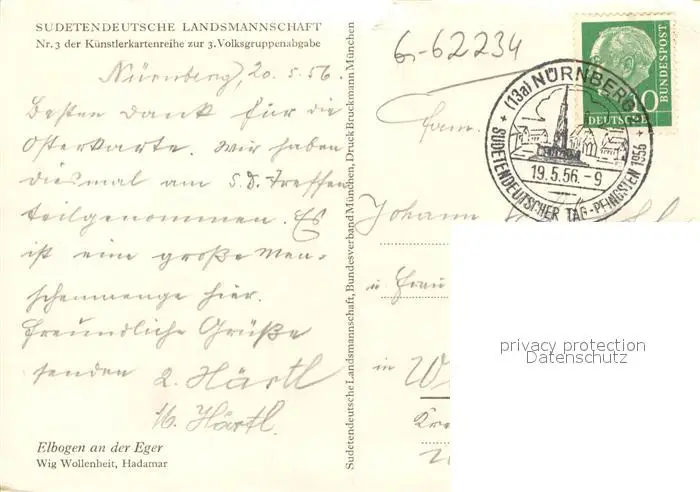 SUDETENDEUTSCHE LANDSMANNSCHAFT
Nr. 3 der Künstlerkartenreihe zur 3. Volksgruppenabgabe
Nürnberg, 20.5.56.
Besten Dank für die
Osterkarte. Wir haben
diesmal am S.D. Treffen
teilgenommen. Es
ist eine große Men-
schenmenge hier.
Freundliche Grüße
senden
Härtl
Härtl.
Elbogen an der Eger
Wig Wollenheit, Hadamar
Sudetendeutsche Landsmannschaft, Bundesverband München, Druck Bruckmann München
6-62234
Fam.
Johann
u. Frau
in
(13a) NÜRNBERG
19.5.56.-9
SUDETENDEUTSCHER TAG-PFINGSTEN 1956
10
DEUTSCHE
BUNDESPOST
privacy protection
Datenschutz